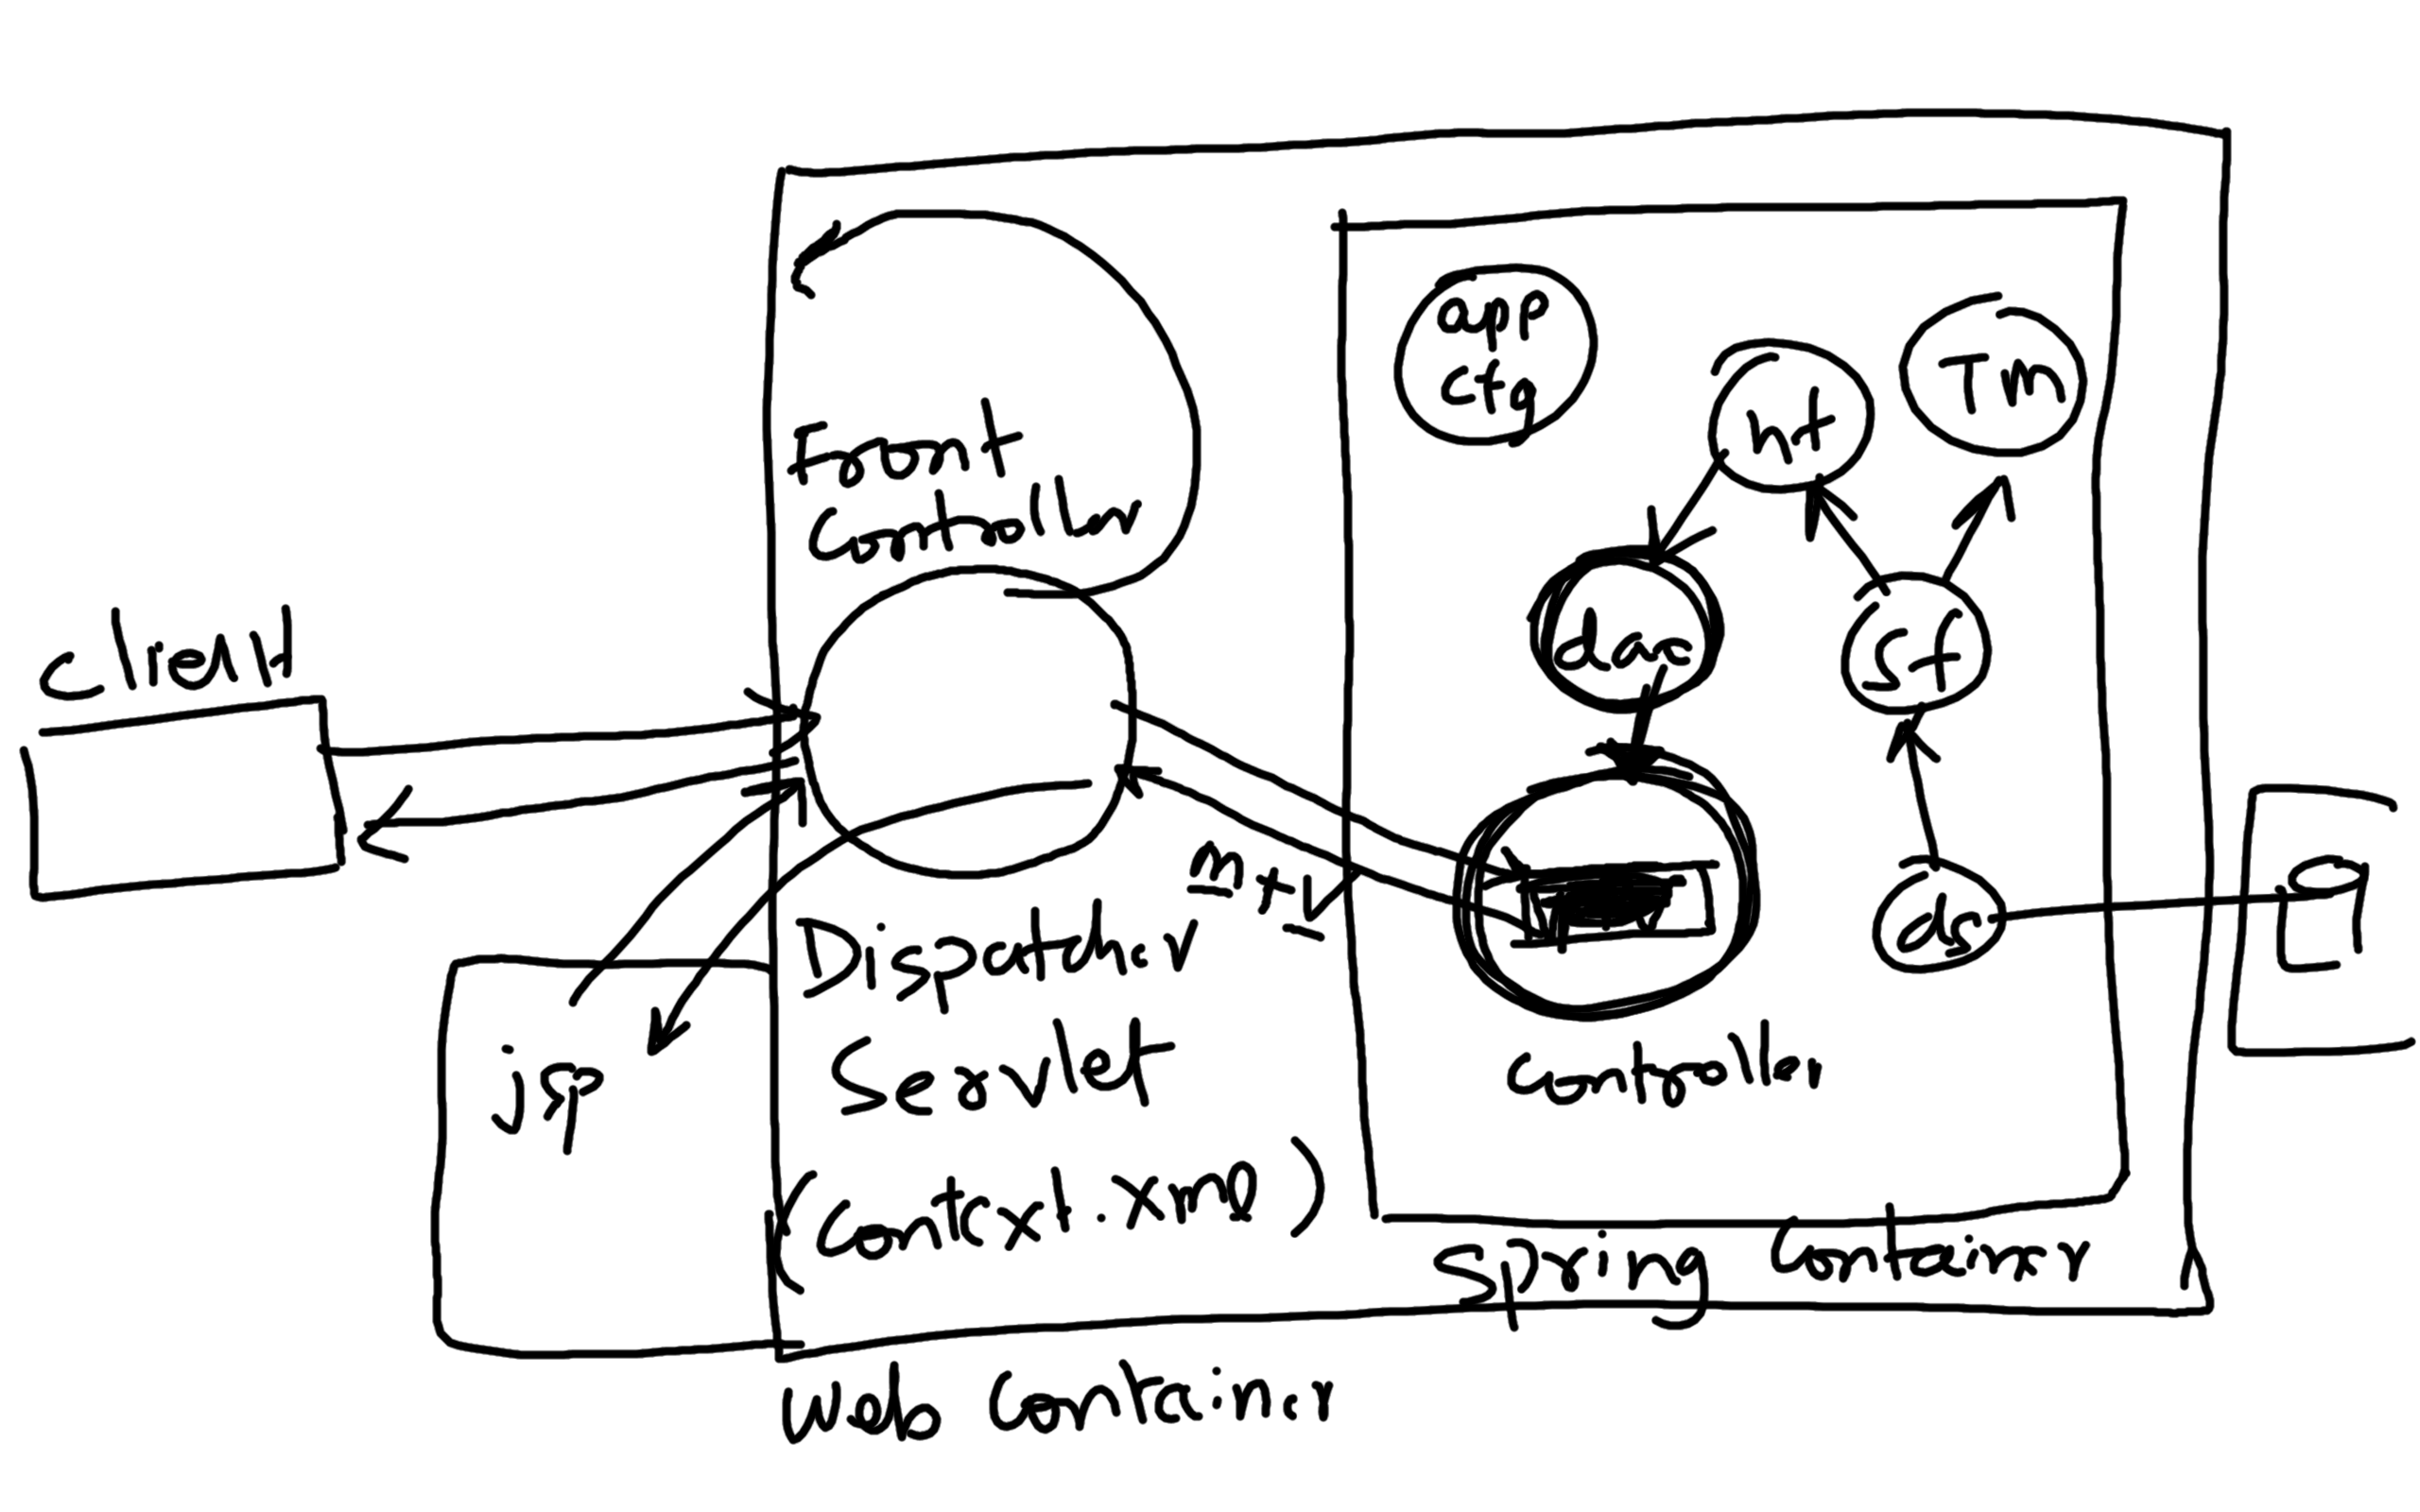 client
Front
Controller
Dispatcher
Servlet
(Context.xml)
jsp
m + V
app
cfg
ht
Tm
dao
sf
ds
Controller
Spring Container
Web Container